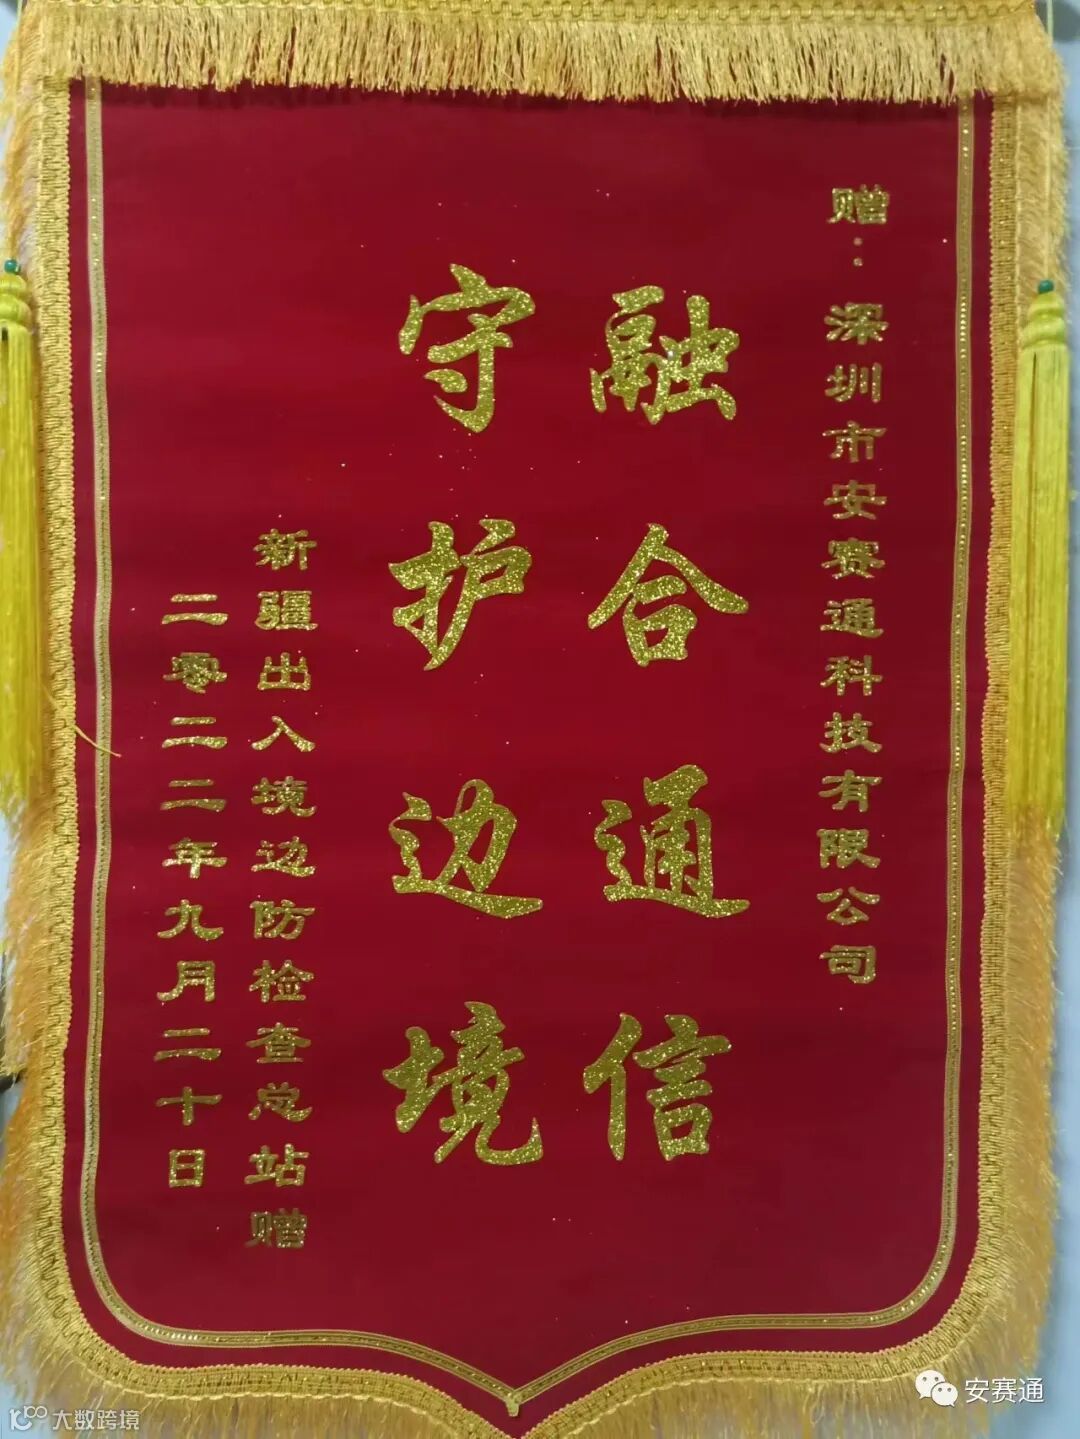 赠：深圳市安赛通科技有限公司
融合通信
守护边境
新疆出入境边防检查总站赠
二零二二年九月二十日
安赛通
大数跨境